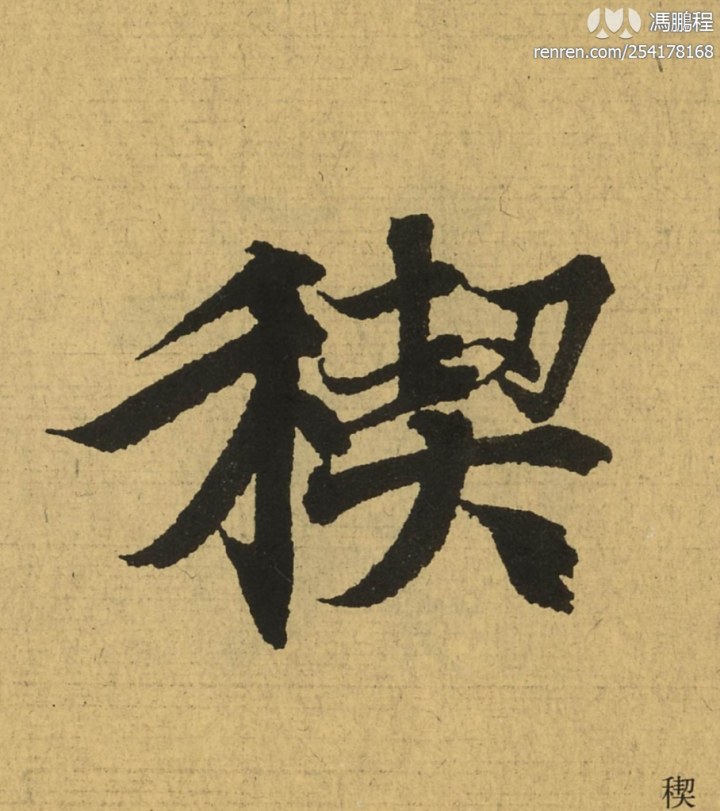 馮鵬程
renren.com/254178168
稧
稧